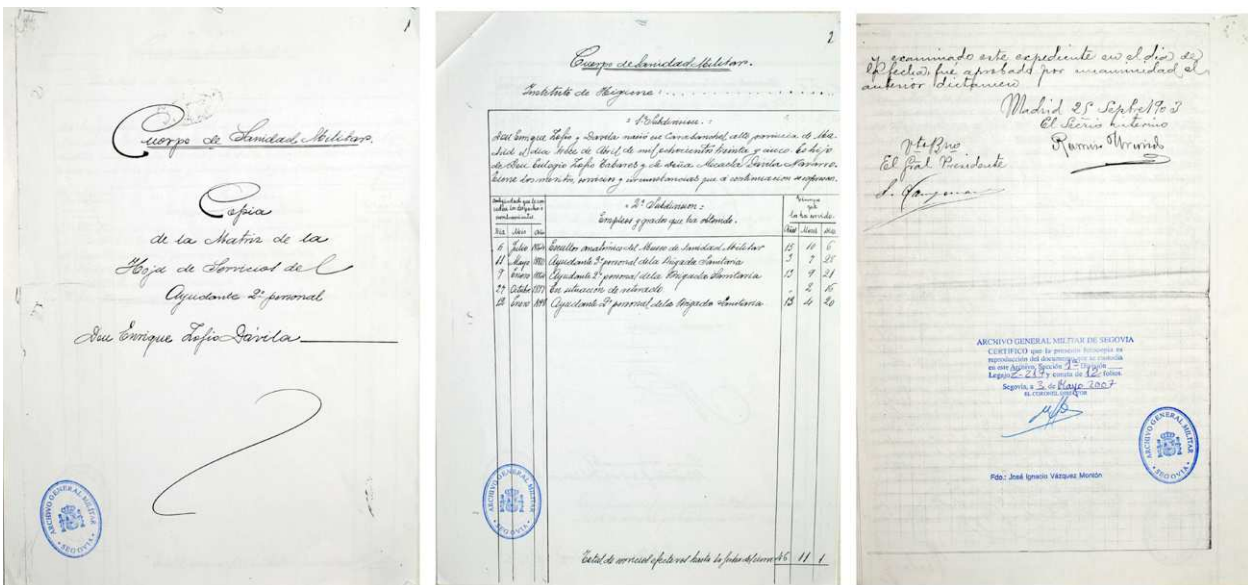 1
Cuerpo de Sanidad Militar.
Copia
de la Matriz de la
Hoja de Servicios del
Ayudante 2º personal
Don Enrique Zofio Dávila
ARCHIVO GENERAL MILITAR
SEGOVIA
2
Cuerpo de Sanidad Militar.
Instituto de Higiene
1ª Subdivision:
Don Enrique Zofio y Davila nació en Carabanchel alto, provincia de Ma-
drid el dia trece de Abril de mil ochocientos treinta y cinco. Es hijo
de Don Eulogio Zofio Tabares y de Doña Micaela Davila Navarro.
Tiene los meritos, servicios y circunstancias que á continuacion se expresan.
2ª Subdivision:
Empleos y grados que ha obtenido.
Tiempo
que
los ha servido.
Dia Mes Año
Años Meses dias
6 Julio Escultor anatómico del Museo de Sanidad Militar 15 10 5
11 Mayo Ayudante 3º personal de la Brigada Sanitaria 3 7 28
9 Enero Ayudante 2º personal de la Brigada Sanitaria 13 9 21
27 Octubre En situacion de retirado - 2 16
13 Enero Ayudante 2º personal de la Brigada Sanitaria 13 4 20
Total de servicios efectivos hasta la fecha 46 11 1
ARCHIVO GENERAL MILITAR
SEGOVIA
y examinado este expediente en el dia de
la fecha, fue aprobado por unanimidad el
anterior dictamen
Madrid 25 Septbre 1903
El Secrio interino
Vto Bno
El Gral Presidente
ARCHIVO GENERAL MILITAR DE SEGOVIA
CERTIFICO que la presente fotocopia es
reproducción del documento que se custodia
en este Archivo, Sección 1ª División
Legajo Z-219 y consta de 12 folios.
Segovia, a 3 de Mayo 2007
EL CORONEL DIRECTOR
Fdo.: José Ignacio Vázquez Montón
ARCHIVO GENERAL MILITAR
SEGOVIA